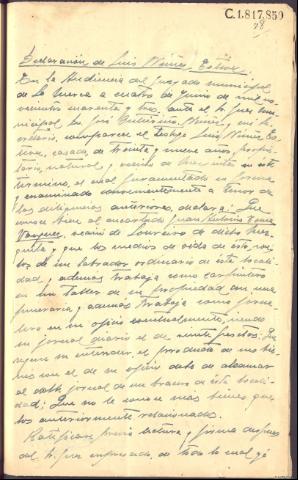 C.1.817.850
78
Declaración de Luis Núñez Estévez
En la Audiencia del Juzgado municipal
de la a cuatro de Junio de mil no-
vecientos cuarenta y tres, ante el Sr. Juez mu-
nicipal Don José Núñez, y mi Se-
cretario, comparece el testigo Luis Núñez Es-
tévez, casado, de treinta y nueve años,
natural y vecino de en este
termino, el cual juramentado en forma
y examinado convenientemente a tenor de
las diligencias anteriores, declara: Que
conoce bien al encartado Juan
Vazquez, vecino de Loureiro de dicha
y que los medios de vida de este, son
los de un labrador ordinario de esta locali-
dad, y ademas trabaja como carpintero
en un taller de su propiedad con una
y ademas trabaja como
en su oficio eventualmente, siendo
su jornal diario el de veinte pesetas: Que
segun su entender, el producto de sus bie-
nes con el de su oficio debe de alcanzar
al doble jornal de un bracero de esta locali-
dad: Que no le conoce mas bienes que
los anteriormente relacionados.
Ratificase previa lectura y firma despues
del Sr. Juez expresado, de todo lo cual yo